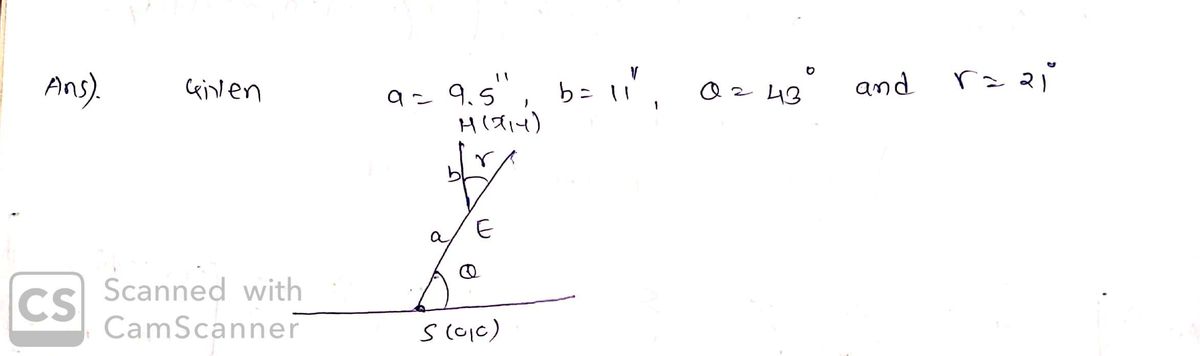 Ans). Given a = 9.5", b = 11", Q = 43° and r = 21°
H(x,y)
b r
a E
Q
S (0,0)
CS Scanned with
CamScanner